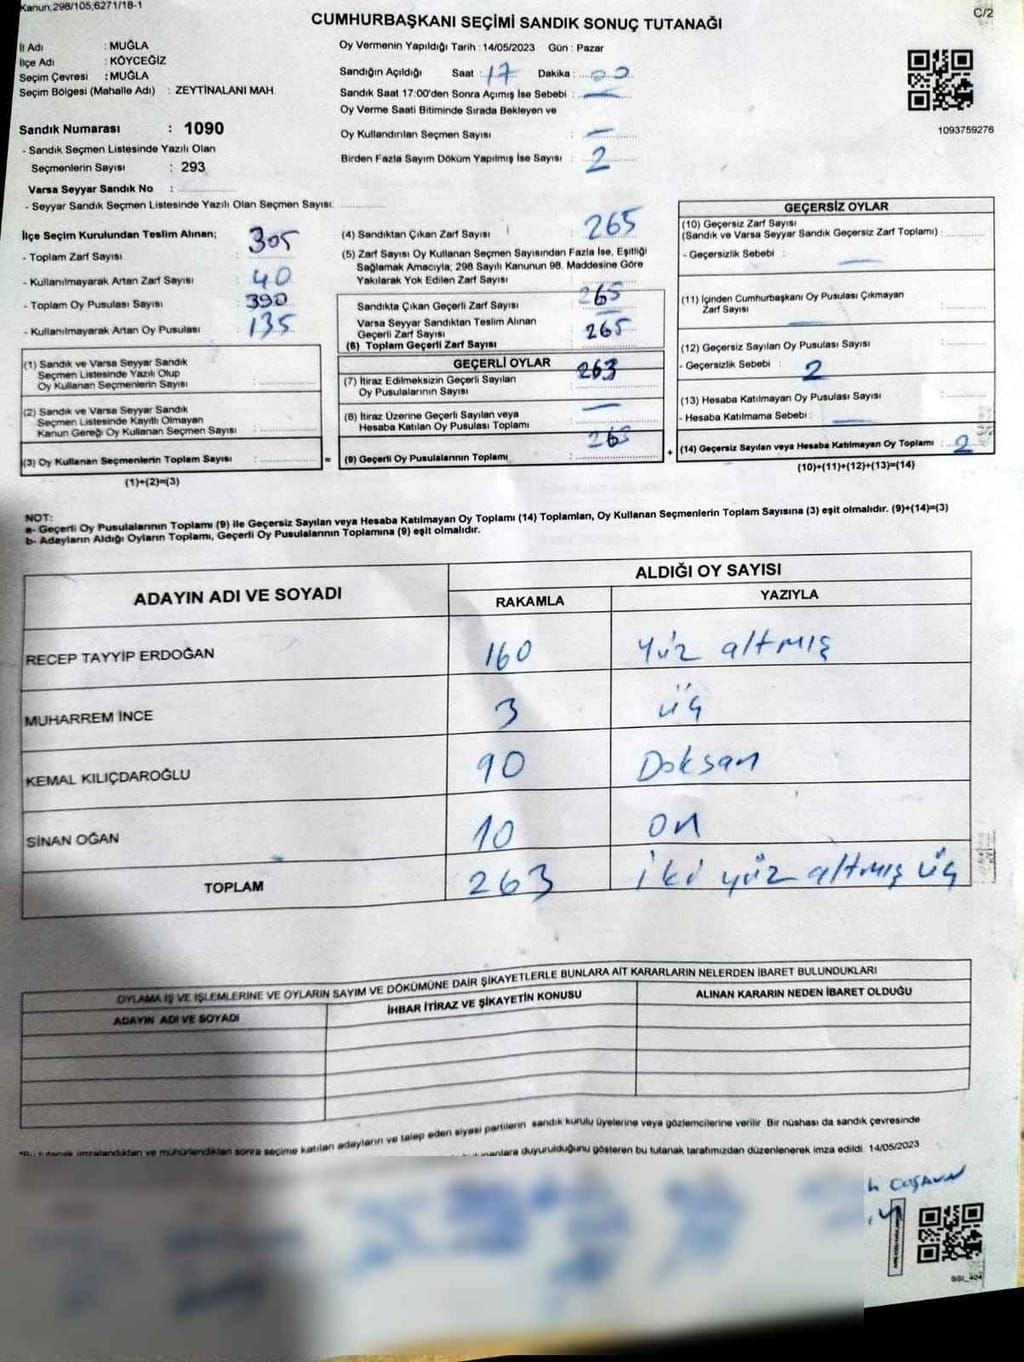 Kanun;298/105;6271/18-1
C/2
CUMHURBAŞKANI SEÇİMİ SANDIK SONUÇ TUTANAĞI
İl Adı : MUĞLA
İlçe Adı : KÖYCEĞİZ
Seçim Çevresi : MUĞLA
Seçim Bölgesi (Mahalle Adı) : ZEYTİNALANI MAH.
Sandık Numarası : 1090
- Sandık Seçmen Listesinde Yazılı Olan
Seçmenlerin Sayısı : 293
Varsa Seyyar Sandık No :
- Seyyar Sandık Seçmen Listesinde Yazılı Olan Seçmen Sayısı:
Oy Vermenin Yapıldığı Tarih : 14/05/2023 Gün : Pazar
Sandığın Açıldığı Saat : 17 Dakika : 00
Sandık Saat 17:00'den Sonra Açımış İse Sebebi : —
Oy Verme Saati Bitiminde Sırada Bekleyen ve
Oy Kullandırılan Seçmen Sayısı : —
Birden Fazla Sayım Döküm Yapılmış İse Sayısı : 2
1093759276
İlçe Seçim Kurulundan Teslim Alınan;
- Toplam Zarf Sayısı : 305
- Kullanılmayarak Artan Zarf Sayısı : 40
- Toplam Oy Pusulası Sayısı : 390
- Kullanılmayarak Artan Oy Pusulası : 135
(1) Sandık ve Varsa Seyyar Sandık
Seçmen Listesinde Yazılı Olup
Oy Kullanan Seçmenlerin Sayısı :
(2) Sandık ve Varsa Seyyar Sandık
Seçmen Listesinde Kayıtlı Olmayan
Kanun Gereği Oy Kullanan Seçmen Sayısı :
(3) Oy Kullanan Seçmenlerin Toplam Sayısı : =
(1)+(2)=(3)
(4) Sandıktan Çıkan Zarf Sayısı : 265
(5) Zarf Sayısı Oy Kullanan Seçmen Sayısından Fazla İse, Eşitliği
Sağlamak Amacıyla; 298 Sayılı Kanunun 98. Maddesine Göre
Yakılarak Yok Edilen Zarf Sayısı :
Sandıkta Çıkan Geçerli Zarf Sayısı : 265
Varsa Seyyar Sandıktan Teslim Alınan
Geçerli Zarf Sayısı : —
(6) Toplam Geçerli Zarf Sayısı : 265
GEÇERLİ OYLAR
(7) İtiraz Edilmeksizin Geçerli Sayılan
Oy Pusulalarının Sayısı : 263
(8) İtiraz Üzerine Geçerli Sayılan veya
Hesaba Katılan Oy Pusulası Toplamı : —
(9) Geçerli Oy Pusulalarının Toplamı : +
GEÇERSİZ OYLAR
(10) Geçersiz Zarf Sayısı
(Sandık ve Varsa Seyyar Sandık Geçersiz Zarf Toplamı) :
- Geçersizlik Sebebi : —
(11) İçinden Cumhurbaşkanı Oy Pusulası Çıkmayan
Zarf Sayısı : —
(12) Geçersiz Sayılan Oy Pusulası Sayısı :
- Geçersizlik Sebebi : 2
(13) Hesaba Katılmayan Oy Pusulası Sayısı :
- Hesaba Katılmama Sebebi : —
(14) Geçersiz Sayılan veya Hesaba Katılmayan Oy Toplamı : 2
(10)+(11)+(12)+(13)=(14)
NOT:
a- Geçerli Oy Pusulalarının Toplamı (9) ile Geçersiz Sayılan veya Hesaba Katılmayan Oy Toplamı (14) Toplamları, Oy Kullanan Seçmenlerin Toplam Sayısına (3) eşit olmalıdır. (9)+(14)=(3)
b- Adayların Aldığı Oyların Toplamı, Geçerli Oy Pusulalarının Toplamına (9) eşit olmalıdır.
ADAYIN ADI VE SOYADI
ALDIĞI OY SAYISI
RAKAMLA YAZIYLA
RECEP TAYYİP ERDOĞAN 160 Yüz altmış
MUHARREM İNCE 3 üç
KEMAL KILIÇDAROĞLU 90 Doksan
SİNAN OĞAN 10 on
TOPLAM 263 iki yüz altmış üç
OYLAMA İŞ VE İŞLEMLERİNE VE OYLARIN SAYIM VE DÖKÜMÜNE DAİR ŞİKAYETLERLE BUNLARA AİT KARARLARIN NELERDEN İBARET BULUNDUKLARI
ADAYIN ADI VE SOYADI
İHBAR İTİRAZ VE ŞİKAYETİN KONUSU
ALINAN KARARIN NEDEN İBARET OLDUĞU
*Bu tutanak imzalandıktan ve mühürlendikten sonra seçime katılan adayların ve talep eden siyasi partilerin sandık kurulu üyelerine veya gözlemcilerine verilir. Bir nüshası da sandık çevresinde
duyurulduğunu gösteren bu tutanak tarafımızdan düzenlenerek imza edildi. 14/05/2023